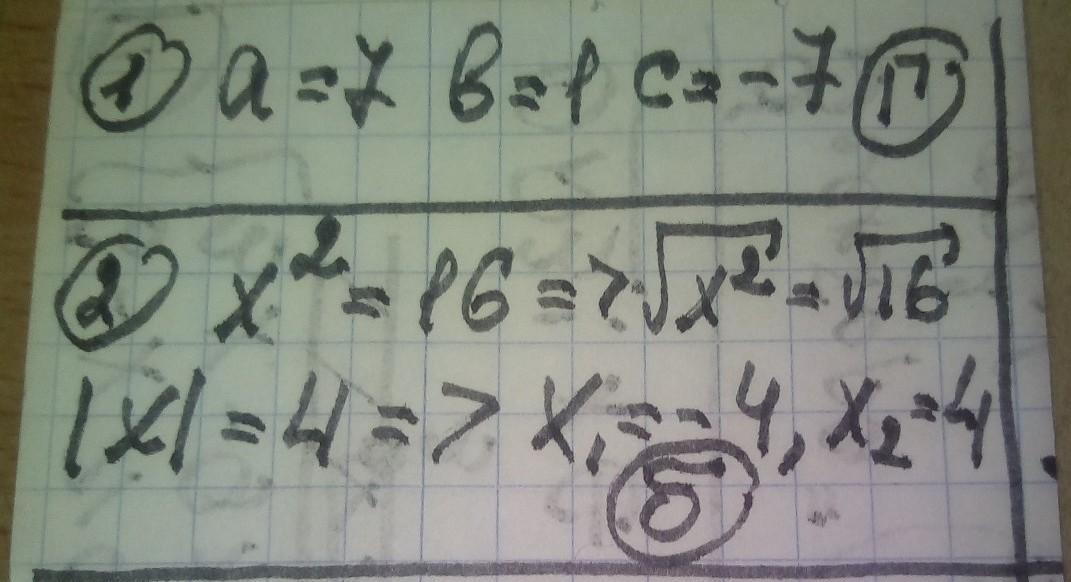 ① a = 7 b = 1 c = -7 Ⓖ
② x² = 16 => √x² = √16
|x| = 4 => x₁ = -4, x₂ = 4.
б